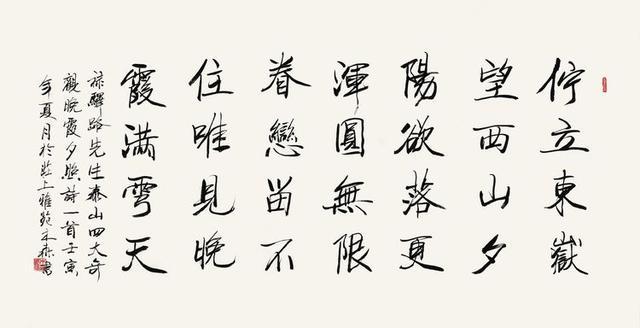 佇立東嶽
望西山夕
陽欲落更
渾圓無限
眷戀留不
住唯見晚
霞满雲天
録驛路先生泰山四大奇
觀晚霞夕照詩一首壬寅
年夏月於上雅書